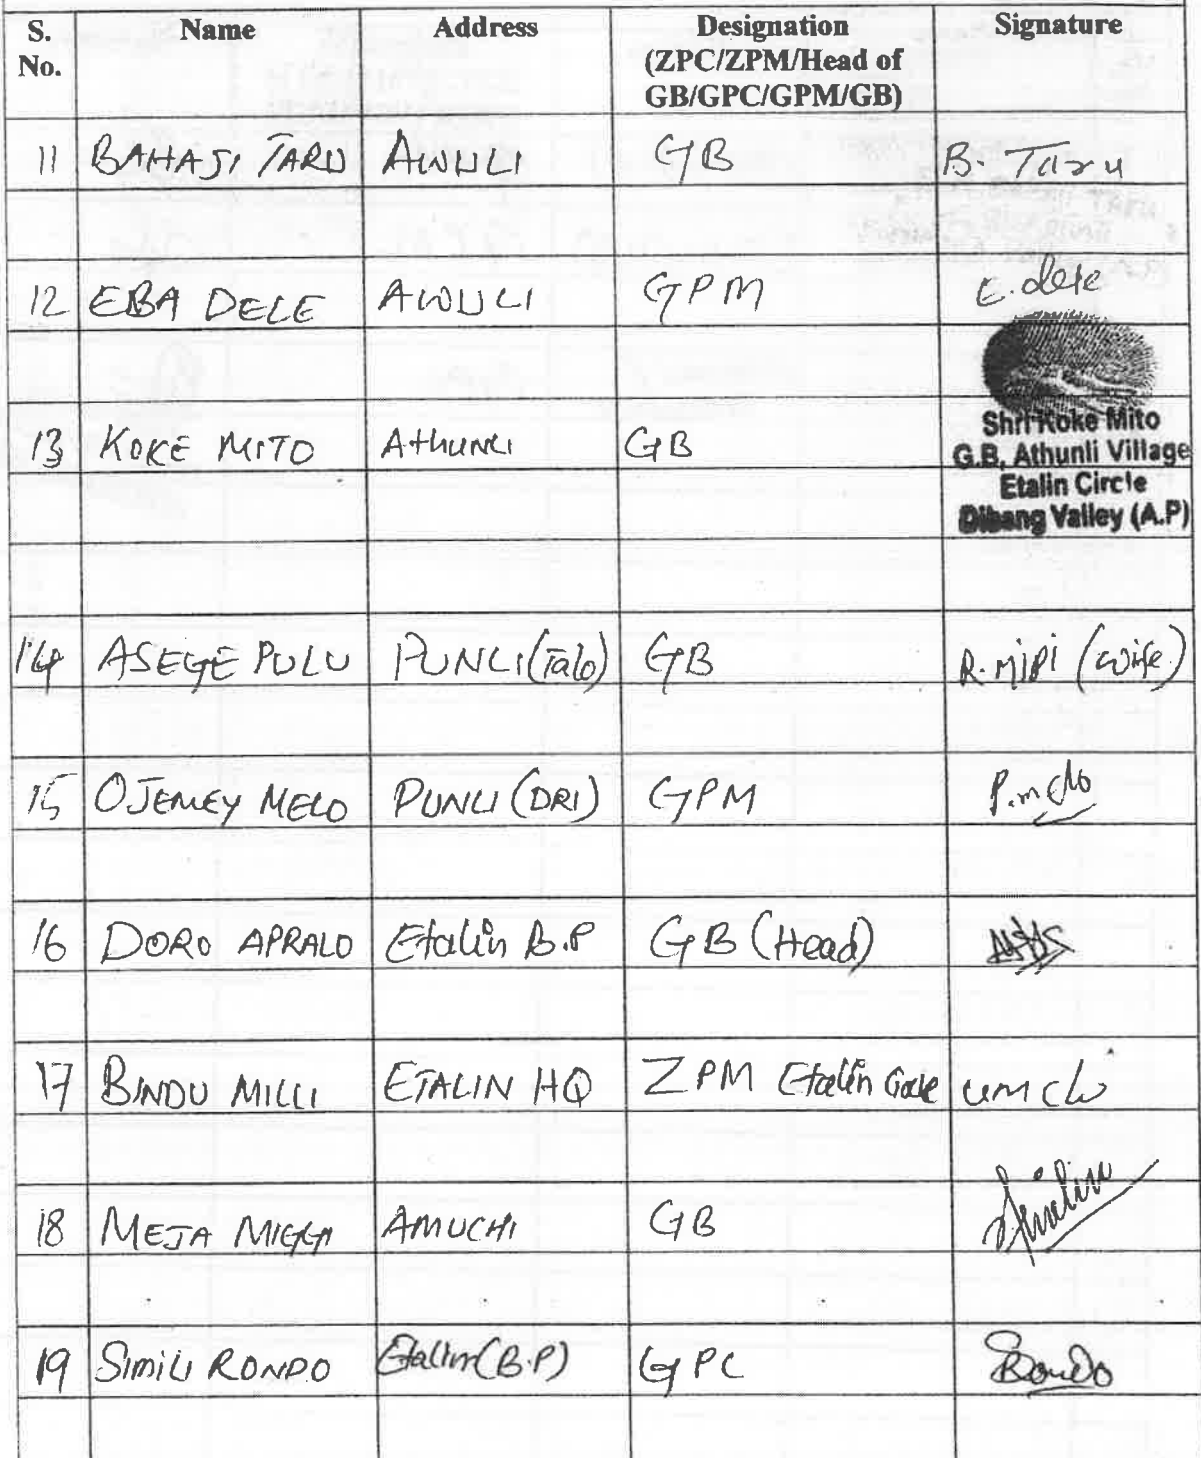 S. No. Name Address Designation (ZPC/ZPM/Head of GB/GPC/GPM/GB) Signature
11 BAHAJI TARU AWULI GB B. Taru
12 EBA DELE AWULI GPM E. dele
13 KOKE MITO Athunli GB
Shri Koke Mito
G.B, Athunli Village
Etalin Circle
Dibang Valley (A.P)
14 ASEGE PULU PUNLI (Talo) GB R. Mipi (wife)
15 OJEMEY MELO PUNLI (DRI) GPM P. melo
16 DORO APRALO Etalin B.P GB (Head)
17 BINDU MILLI ETALIN HQ ZPM Etalin
18 MEJA MIGGA AMUCHI GB
19 SIMILI RONDO Etalin (B.P) GPC Rondo